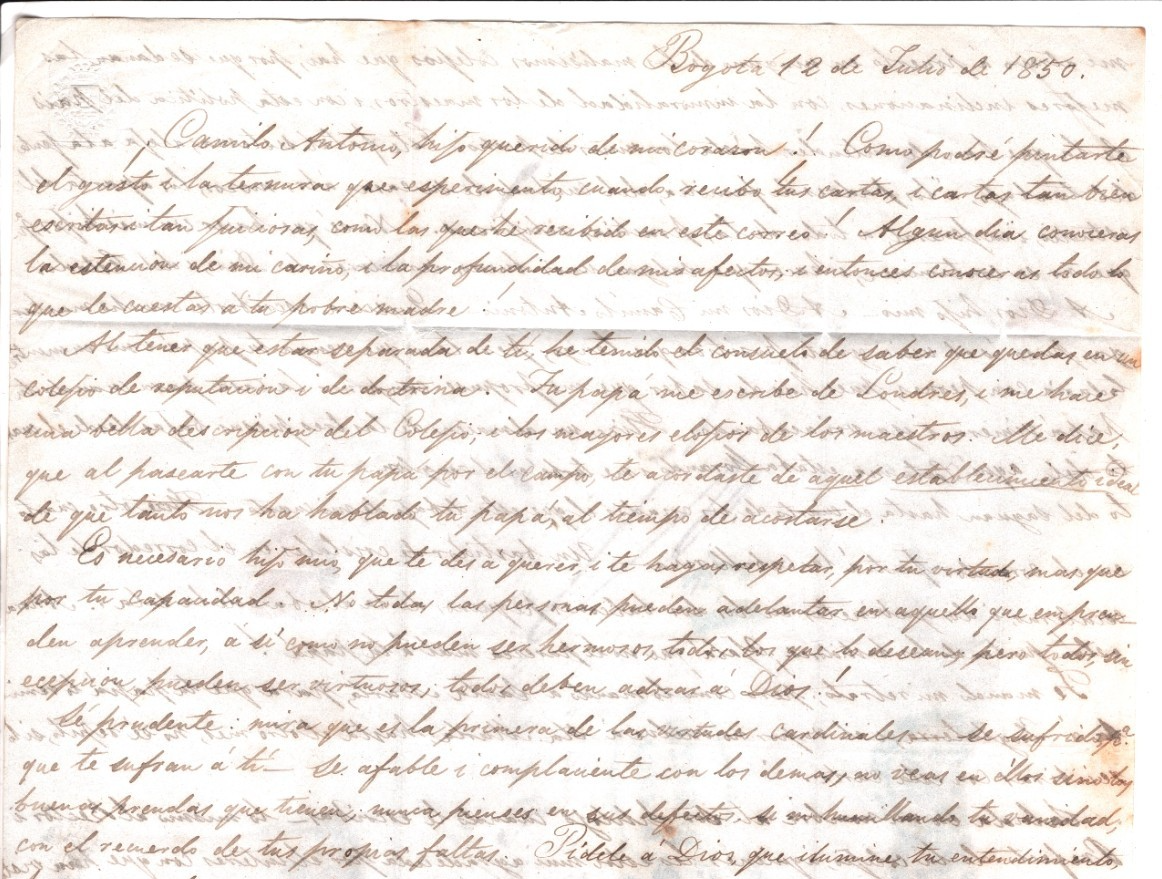 Bogotá 12 de Julio de 1850.
¡Camilo Antonio, hijo querido de mi corazon! Como podré pintarte
el gusto i la ternura que esperimento, cuando recibo tus cartas, i cartas tan bien
escritas i tan juiciosas, como las que he recibido en este correo! Algun dia conoceras
la estencion de mi cariño, i la profundidad de mis afectos, i entonces conoceras todo lo
que le cuestas a tu pobre madre!
Al tener que estar separada de ti, he tenido el consuelo de saber que quedas en un
colejio de reputacion i de doctrina. Tu papá me escribe de Londres, i me hace
una bella descripcion del Colejio, i los mayores elojios de los maestros. Me dice,
que al pasearte con tu papa por el campo, te acordaste de aquel establecimiento ideal
de que tanto nos ha hablado tu papa, al tiempo de acostarse.
Es necesario hijo mio, que te des a querer, i te hagas respetar, por tu virtud, mas que
por tu capacidad. No todas las personas pueden adelantar en aquello que empren-
den aprender, á sí como no pueden ser hermosos, todos los que lo desean; pero todos, sin
ecepcion pueden ser virtuosos, todos deben adorar á Dios!
Sé prudente: mira que es la primera de las virtudes cardinales — se sufrido pa.
que te sufran á tí — Se afable i complaciente con los demas, no veas en éllos sino las
buenas prendas que tienen, nunca pienses en sus defectos, si no humillando tu vanidad,
con el recuerdo de tus propias faltas. Pidele á Dios, que ilumine tu entendimiento,